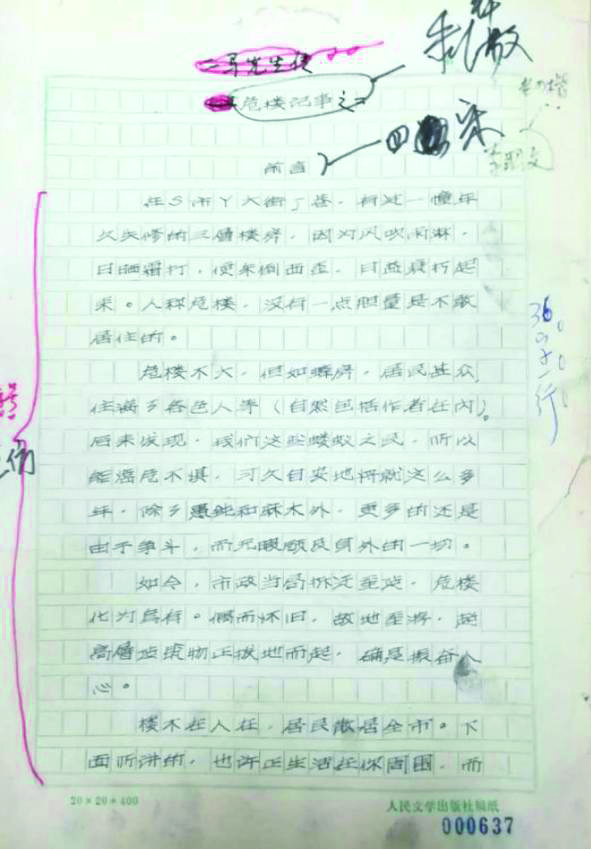 二马先生传
危楼记事之一
前言
四宋
在S市Y大街J巷，有过一幢年
久失修的三层楼房，因为风吹雨淋，
日晒霜打，便东倒西歪，日益衰朽起
来。人称危楼，没有一点胆量是不敢
居住的。
危楼不大，但如蜂房，居民甚众，
住满了各色人等（自然包括作者在内）。
后来发现，我们这些蝼蚁之民，所以
能濒危不惧，可久自安地将就这么多
年，除了愚钝和麻木外，更多的还是
由于争斗，而无暇顾及身外的一切。
如今，市政当局拆迁重建，危楼
化为乌有。偶而怀旧，故地重游，起
高层建筑物正拔地而起，确是振奋人
心。
楼不在人在，居民散居全市。下
面所讲的，也许正生活在你周围，而
20×20=400
人民文学出版社稿纸
000637